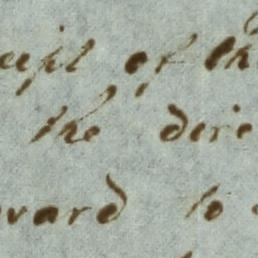 eipt of th
the dire
ward to